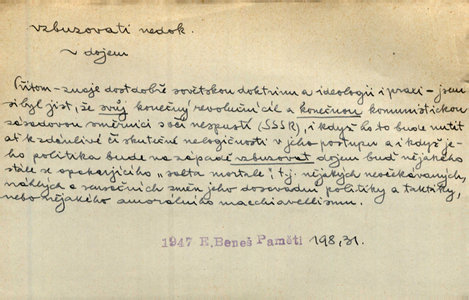 vzbuzovati nedok.
v dojem
Přitom – znaje dost dobře sovětskou doktrinu a ideologii i praxi – jsem
si byl jist, že svůj konečný revoluční cíl a konečnou komunistickou
zásadovou směrnici s očí nespustí (SSSR), i když ho to bude nutit
ať k zdánlivé či skutečné nelogičnosti v jeho postupu a i když je-
ho politika bude na západě vzbuzovat dojem buď nějakého
stále se opakujícího „salta mortale", t. j. nějakých neočekávaných,
náhlých a senročních změn jeho dosavadní politiky a taktiky,
nebo nějakého amorálního macchiavellismu.
1947 E. Beneš Paměti 198,31.